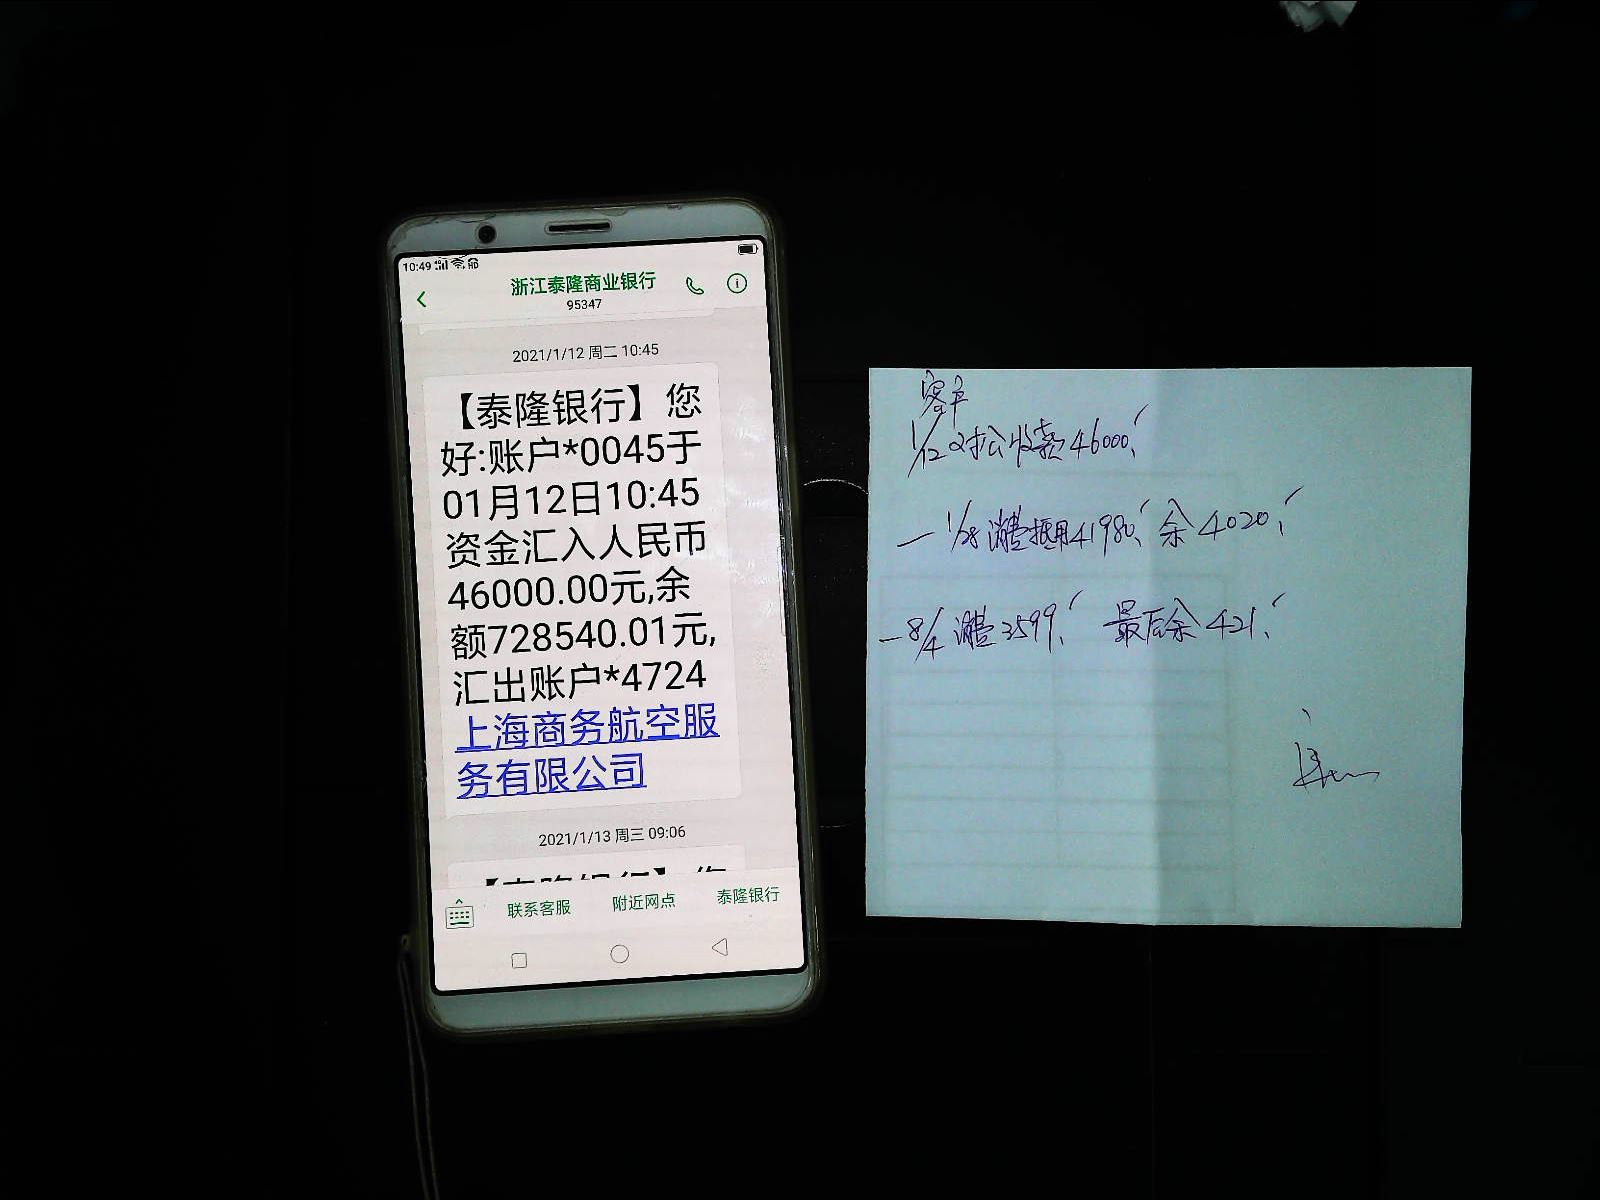 10:49
浙江泰隆商业银行
95347
2021/1/12 周二 10:45
【泰隆银行】您
好:账户*0045于
01月12日10:45
资金汇入人民币
46000.00元,余
额728540.01元,
汇出账户*4724
上海商务航空服
务有限公司
2021/1/13 周三 09:06
联系客服 附近网点 泰隆银行
客户
1/12 对公收款46000
一 1/28 消费抵用41980 余4020
一8/4 消费3599 最后余421